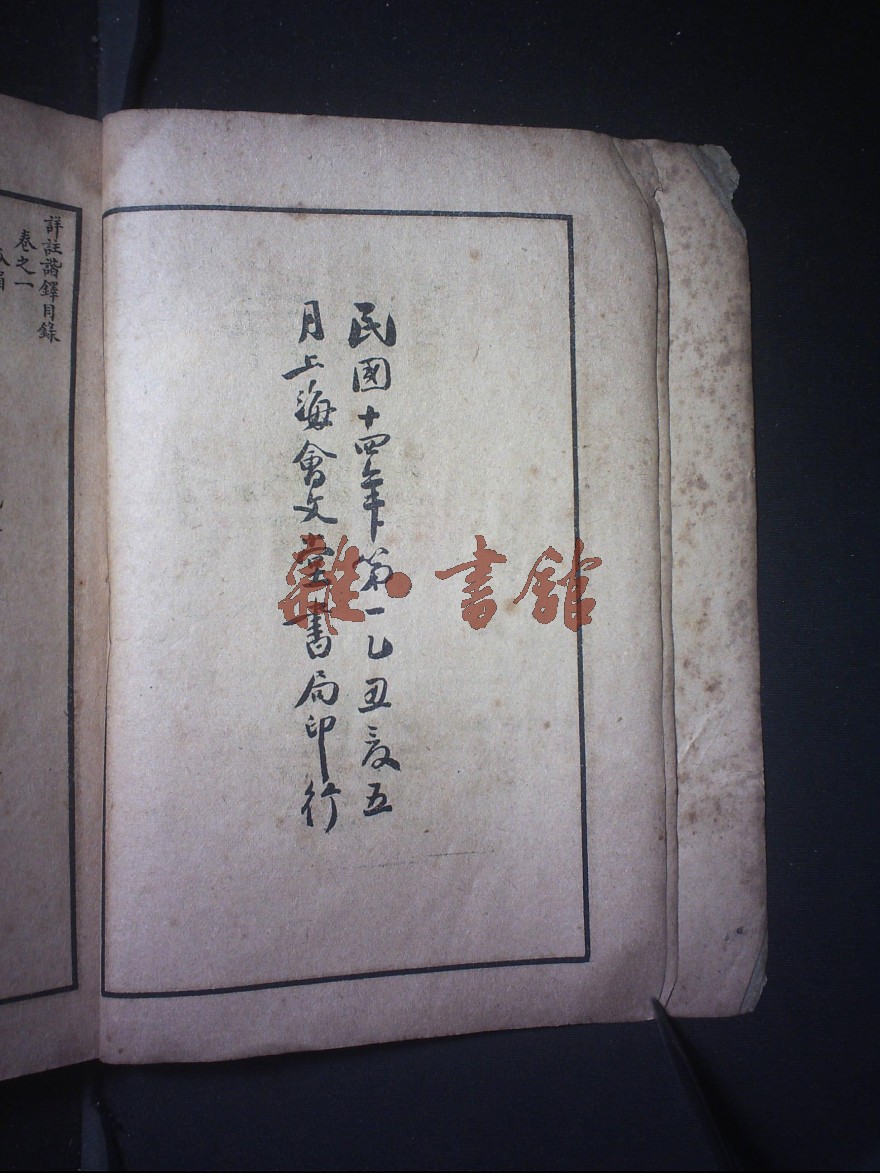 民國十四年第一乙丑夏五
月上海會文堂書局印行
雜·書館
詳註諧鐸目錄
卷之一